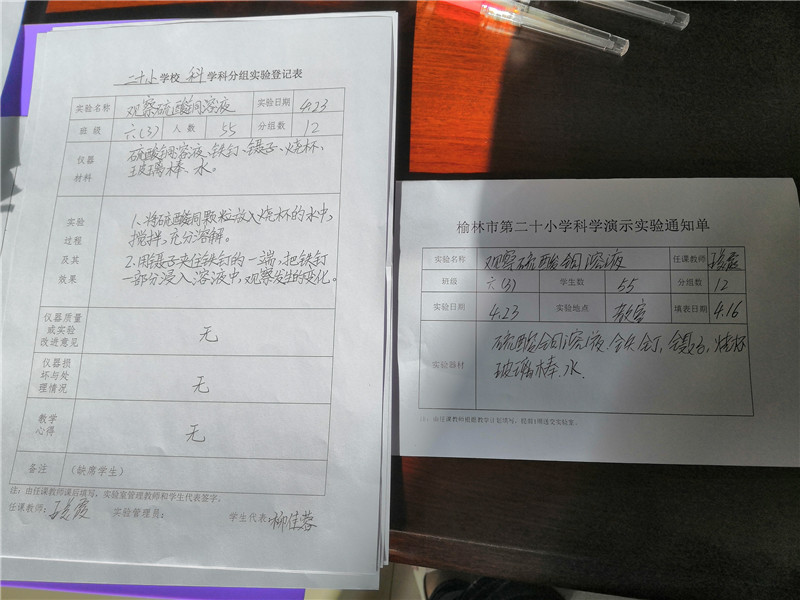 二十小学校 科 学科分组实验登记表
实验名称 观察硫酸铜溶液 实验日期 4.23
班级 六(3) 人数 55 分组数 12
仪器材料 硫酸铜溶液、铁钉、镊子、烧杯、
玻璃棒、水。
实验过程及其效果 1、将硫酸铜颗粒放入烧杯的水中,
搅拌,充分溶解。
2.用镊子夹住铁钉的一端,把铁钉
一部分浸入溶液中,观察发生的变化。
仪器质量或实验改进意见 无
仪器损坏与处理情况 无
教学心得 无
备注 (缺席学生)
注:由任课教师课后填写,实验室管理教师和学生代表签字。
任课教师: 实验管理员: 学生代表:柳佳蓉
榆林市第二十小学科学演示实验通知单
实验名称 观察硫酸铜溶液 任课教师
班级 六(3) 学生数 55 分组数 12
实验日期 4.23 实验地点 教室 填表日期 4.16
实验器材 硫酸铜溶液.铁钉,镊子,烧杯
玻璃棒.水.
注:由任课教师根据教学计划填写,提前1周送交实验室。